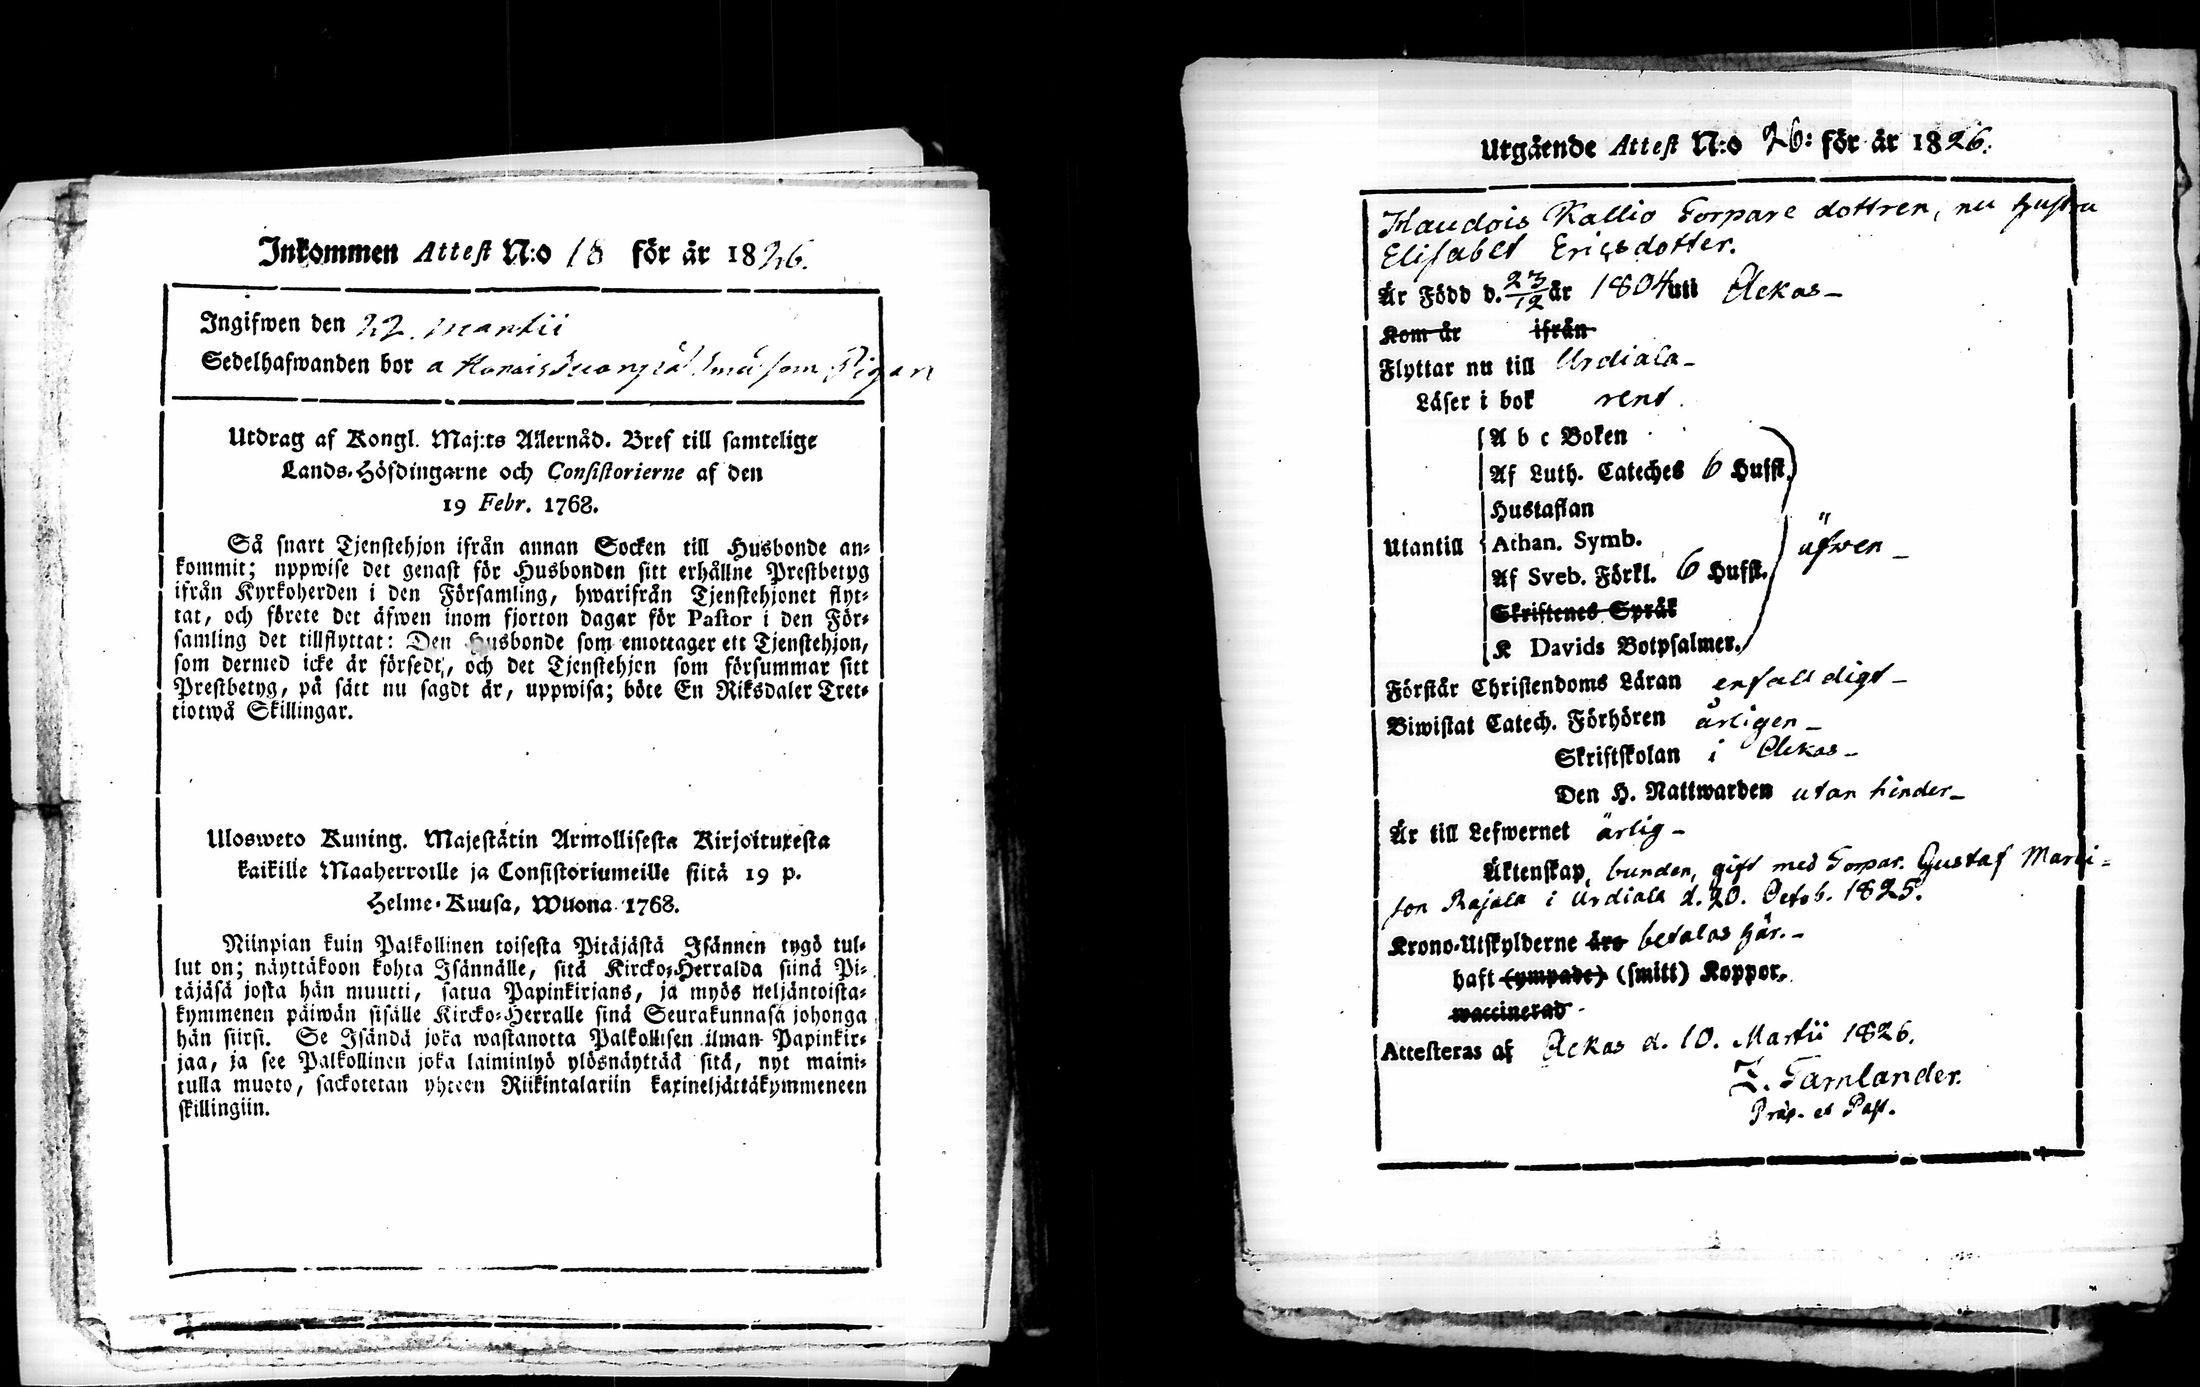 Inkommen Attest N:o 18 för år 1826.
Ingifwen den 22. Martii
Sedelhafwanden bor a som Pigan
Utdrag af Kongl. Maj:ts Allernåd. Bref till samtelige
Lands-Höfdingarne och Consistorierne af den
19 Febr. 1768.
Så snart Tjenstehjon ifrån annan Socken till Husbonde an-
kommit; uppwise det genast för Husbonden sitt erhållne Prestbetyg
ifrån Kyrkoherden i den Församling, hwarifrån Tjenstehjonet flyt-
tat, och förete det äfwen inom fjorton dagar för Pastor i den För-
samling det tillflyttat: Den Husbonde som emottager ett Tjenstehjon,
som dermed icke är försedt, och det Tjenstehjon som försummar sitt
Prestbetyg, på sätt nu sagdt är, uppwisa; böte En Riksdaler Tret-
tiotwå Skillingar.
Ulosweto Kuning. Majestätin Armollisesta Kirjoituxesta
kaikille Maaherroille ja Consistoriumeille siitä 19 p.
Helme-Kuusa, Wuona 1768.
Niinpian kuin Palkollinen toisesta Pitäjästä Isännen tygö tul-
lut on; näyttäkoon kohta Isännälle, sitä Kircko-Herralda siinä Pi-
täjäsä josta hän muutti, satua Papinkirjans, ja myös neljäntoista-
kymmenen päiwän sisälle Kircko-Herralle sinä Seurakunnasa johonga
hän siirsi. Se Isändä joka wastanotta Palkollisen ilman Papinkir-
jaa, ja see Palkollinen joka laiminlyö ylösnäyttää sitä, nyt maini-
tulla muoto, sackotetan yhteen Riikintalariin kaxineljättäkymmeneen
skillingiin.
Utgående Attest N:o 26: för år 1826.
Haudois Kallio Torpare dottren, nu hustru
Elisabet Ericsdotter.
Är Född d. 23/12 år 1804 uti Ackas -
Kom år ifrån
Flyttar nu till Urdiala -
Läser i bok rent.
A b c Boken
Af Luth. Cateches 6 Hufst.
Hustaflan
Utantill Athan. Symb. äfwen -
Af Sveb. Förkl. 6 Hufst.
Skriftenes Språk
K Davids Botpsalmer.
Förstår Christendoms Läran enfalldigt -
Biwistat Catech. Förhören årligen -
Skriftskolan i Ackas -
Den H. Nattwarden utan hinder -
Är till Lefwernet ärlig -
Äktenskap, bunden, gift med Torpar. Gustaf Marti-
son Rajala i Urdiala d. 20. Octob. 1825.
Krono-Utskylderne äro betalas här. -
haft (ympade) (smitt) Koppor.
waccinerad
Attesteras af Ackas d. 10. Martii 1826.
Z. Tamlander.
Præp. et Past.